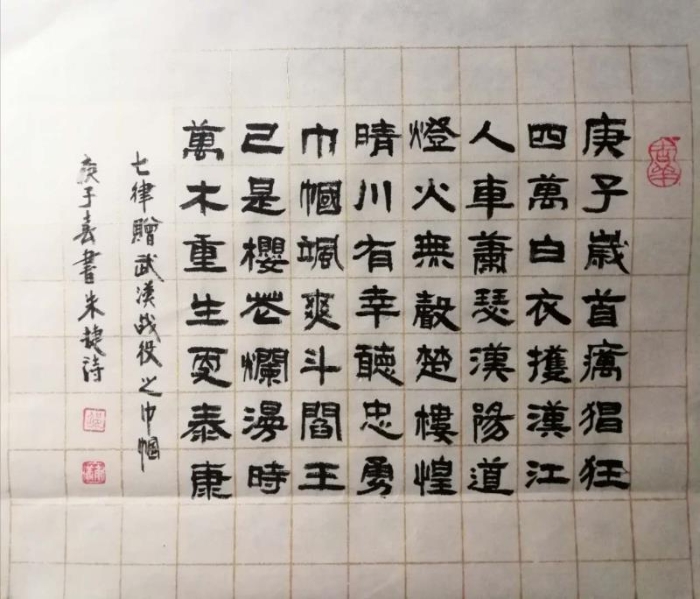 庚子歲首癘猖狂
四萬白衣擭漢江
人車蕭瑟漢陽道
燈火無聲楚樓惶
晴川有幸聽忠勇
巾幗颯爽斗閻王
已是櫻花爛漫時
萬木重生更泰康
七律贈武漢战役之巾帼
庚子春書朱捷诗